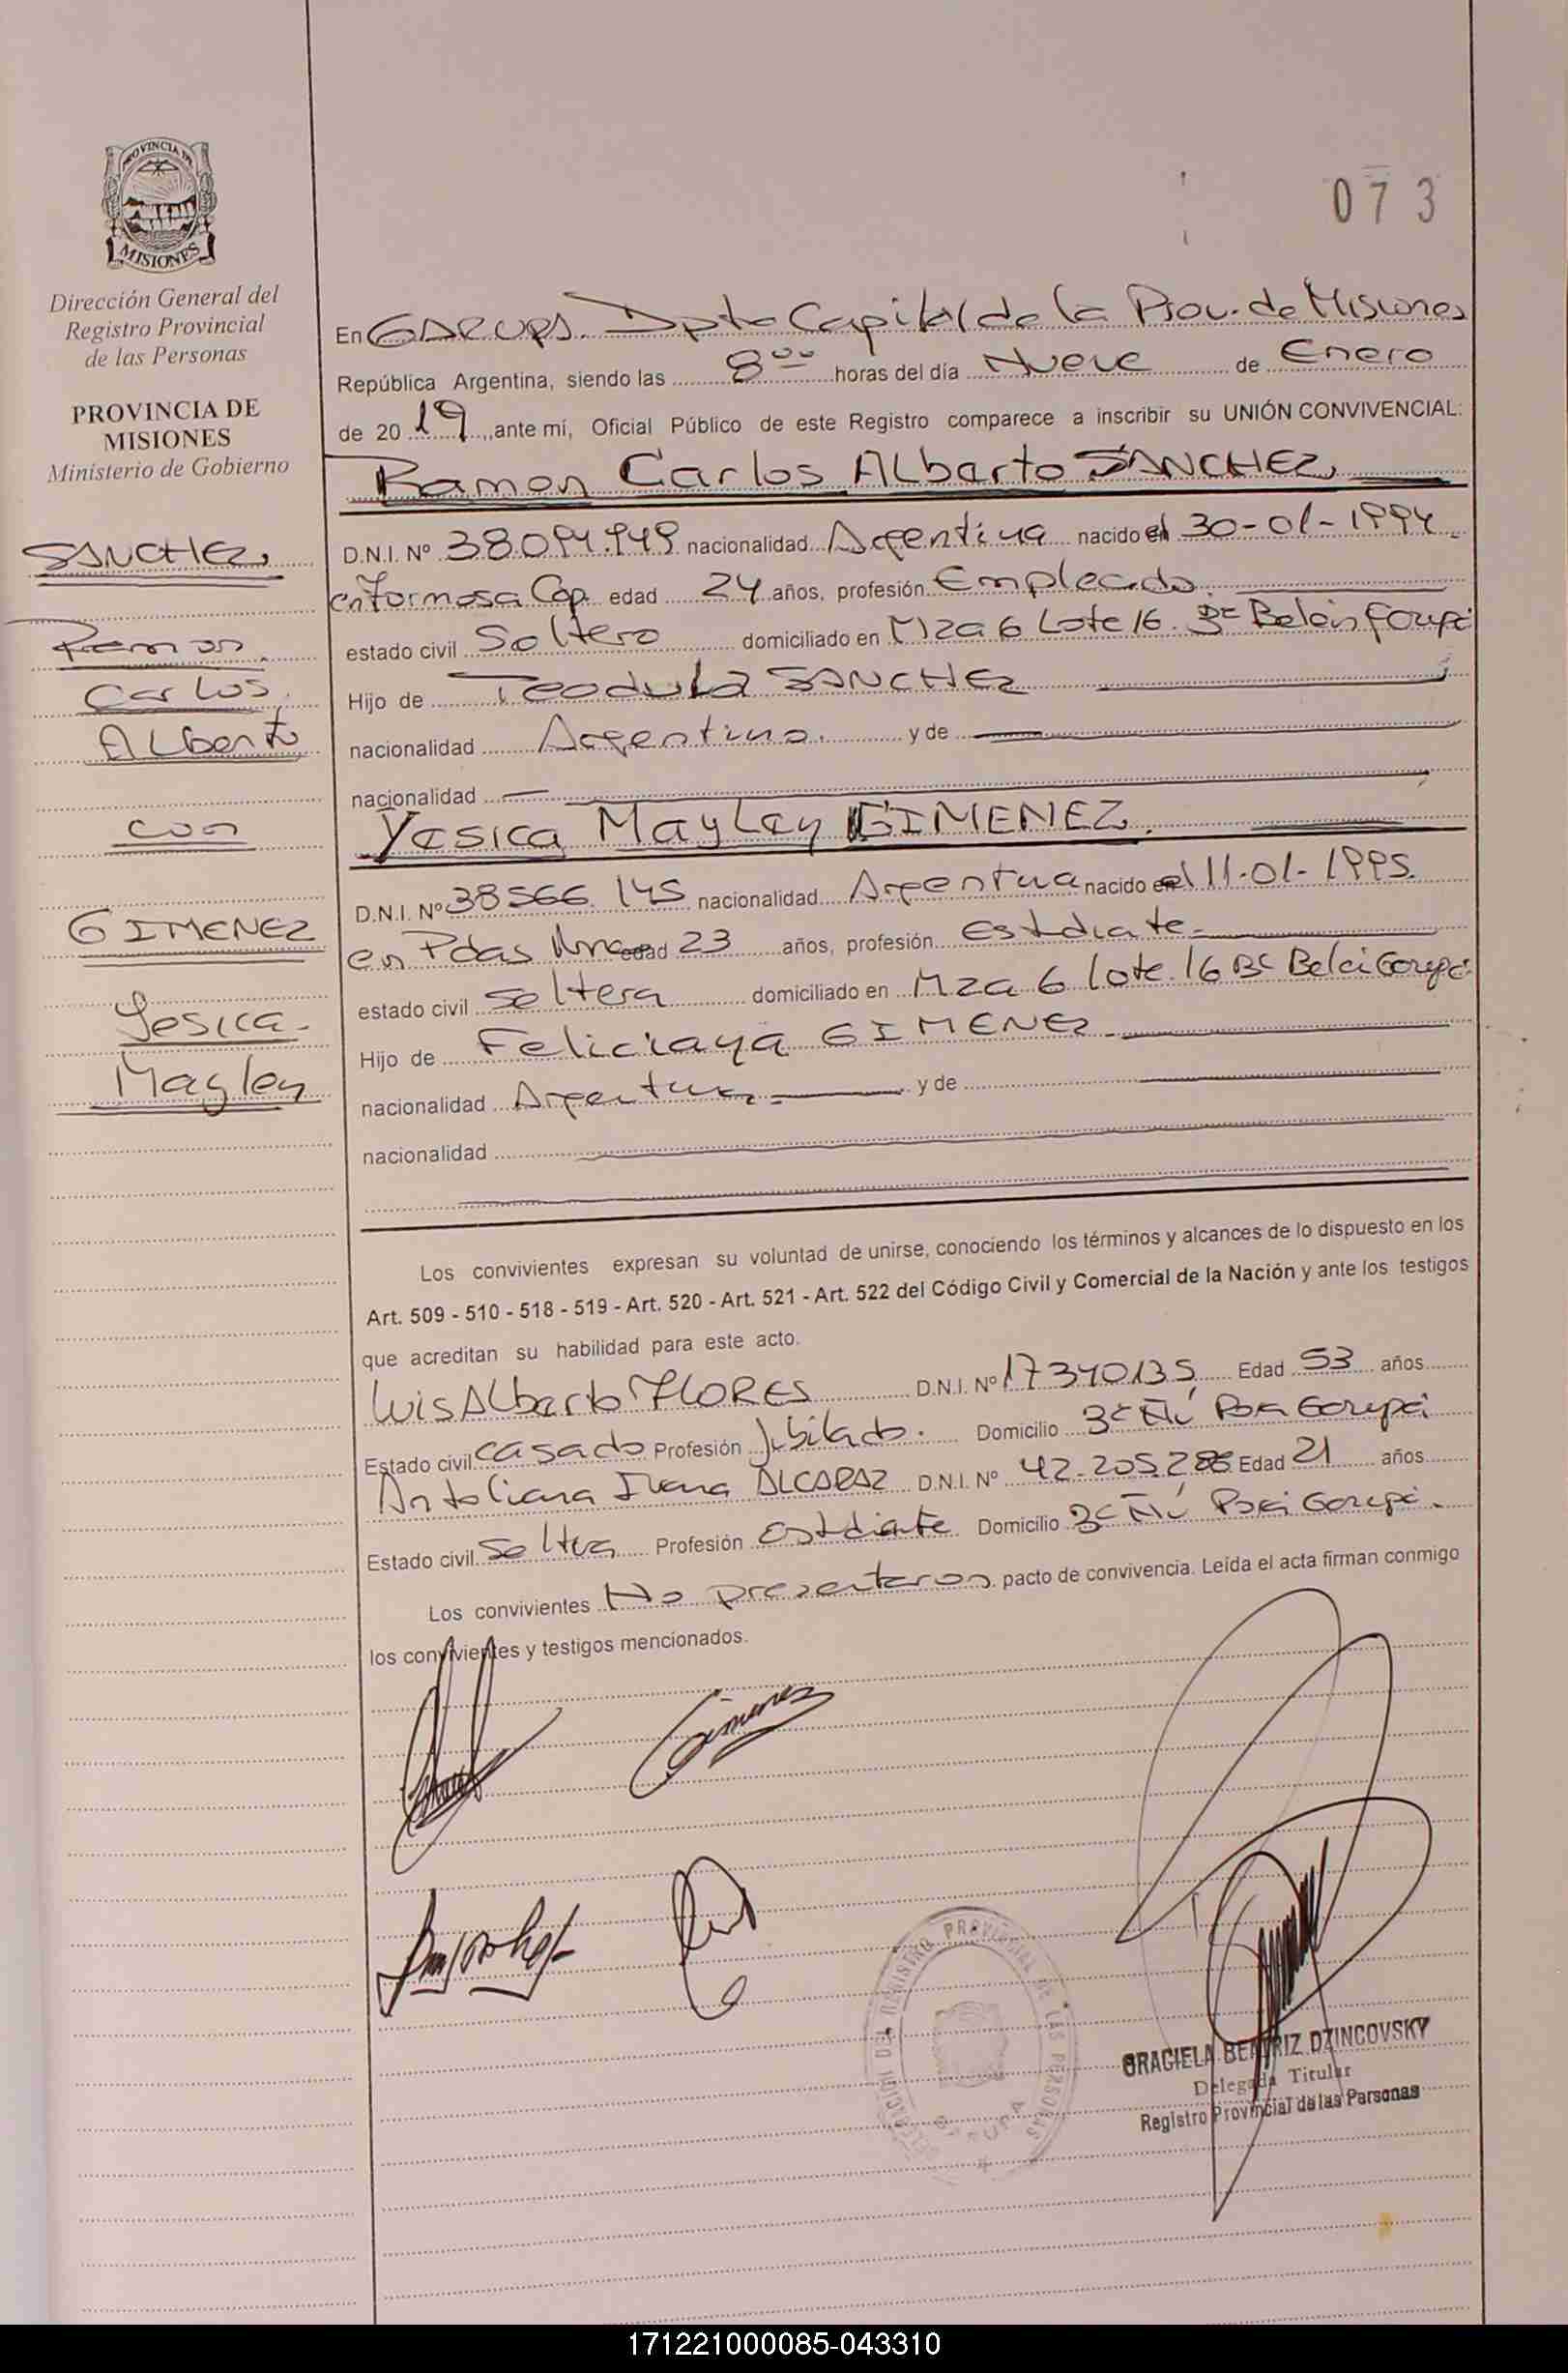 073
PROVINCIA DE
MISIONES
Dirección General del
Registro Provincial
de las Personas
PROVINCIA DE
MISIONES
Ministerio de Gobierno
SANCHEZ,
Ramon
Carlos
ALberto
con
GIMENEZ
Yesica
Mayley
En GARUPA. Dpto Capital de la Prov. de Misiones
República Argentina, siendo las 8 00 horas del día Nueve de Enero
de 20 19 ,,ante mí, Oficial Público de este Registro comparece a inscribir su UNIÓN CONVIVENCIAL:
Ramon Carlos ALberto SANCHEZ,
D.N.I. Nº 38.094.949 nacionalidad Argentina nacido el 30-01-1994
en Formosa Cap. edad 24 años, profesión Empleado.
estado civil Soltero domiciliado en Mza 6 Lote 16 Bº Belén Garupá
Hijo de Teodula SANCHEZ
nacionalidad Argentina. y de
nacionalidad
Yesica MayLey GIMENEZ.
D.N.I. Nº 38566.145 nacionalidad Argentina nacido el 11-01-1995.
en Pdas Mnes edad 23 años, profesión Estdiante
estado civil Soltera domiciliado en Mza 6 lote 16 Bº Belén Garupá
Hijo de Feliciana GIMENEZ
nacionalidad Argentina y de
nacionalidad
Los convivientes expresan su voluntad de unirse, conociendo los términos y alcances de lo dispuesto en los
Art. 509 - 510 - 518 - 519 - Art. 520 - Art. 521 - Art. 522 del Código Civil y Comercial de la Nación y ante los testigos
que acreditan su habilidad para este acto.
Luis ALberto FLORES D.N.I. Nº 17340135 Edad 53 años
Estado civil Casado Profesión Jubilado. Domicilio Bº Ñú Porá Garupá
Antoliana Ivana ALCARAZ D.N.I. Nº 42.205.286 Edad 21 años
Estado civil Soltera Profesión Estdiante Domicilio Bº Ñú Porá Garupá.
Los convivientes No presentaron pacto de convivencia. Leída el acta firman conmigo
los convivientes y testigos mencionados.
Gimenez
DELEGACION DEL REGISTRO PROVINCIAL DE LAS PERSONAS
GARUPA
GRACIELA BEATRIZ DZINCOVSKY
Delegada Titular
Registro Provincial de las Personas
171221000085-043310